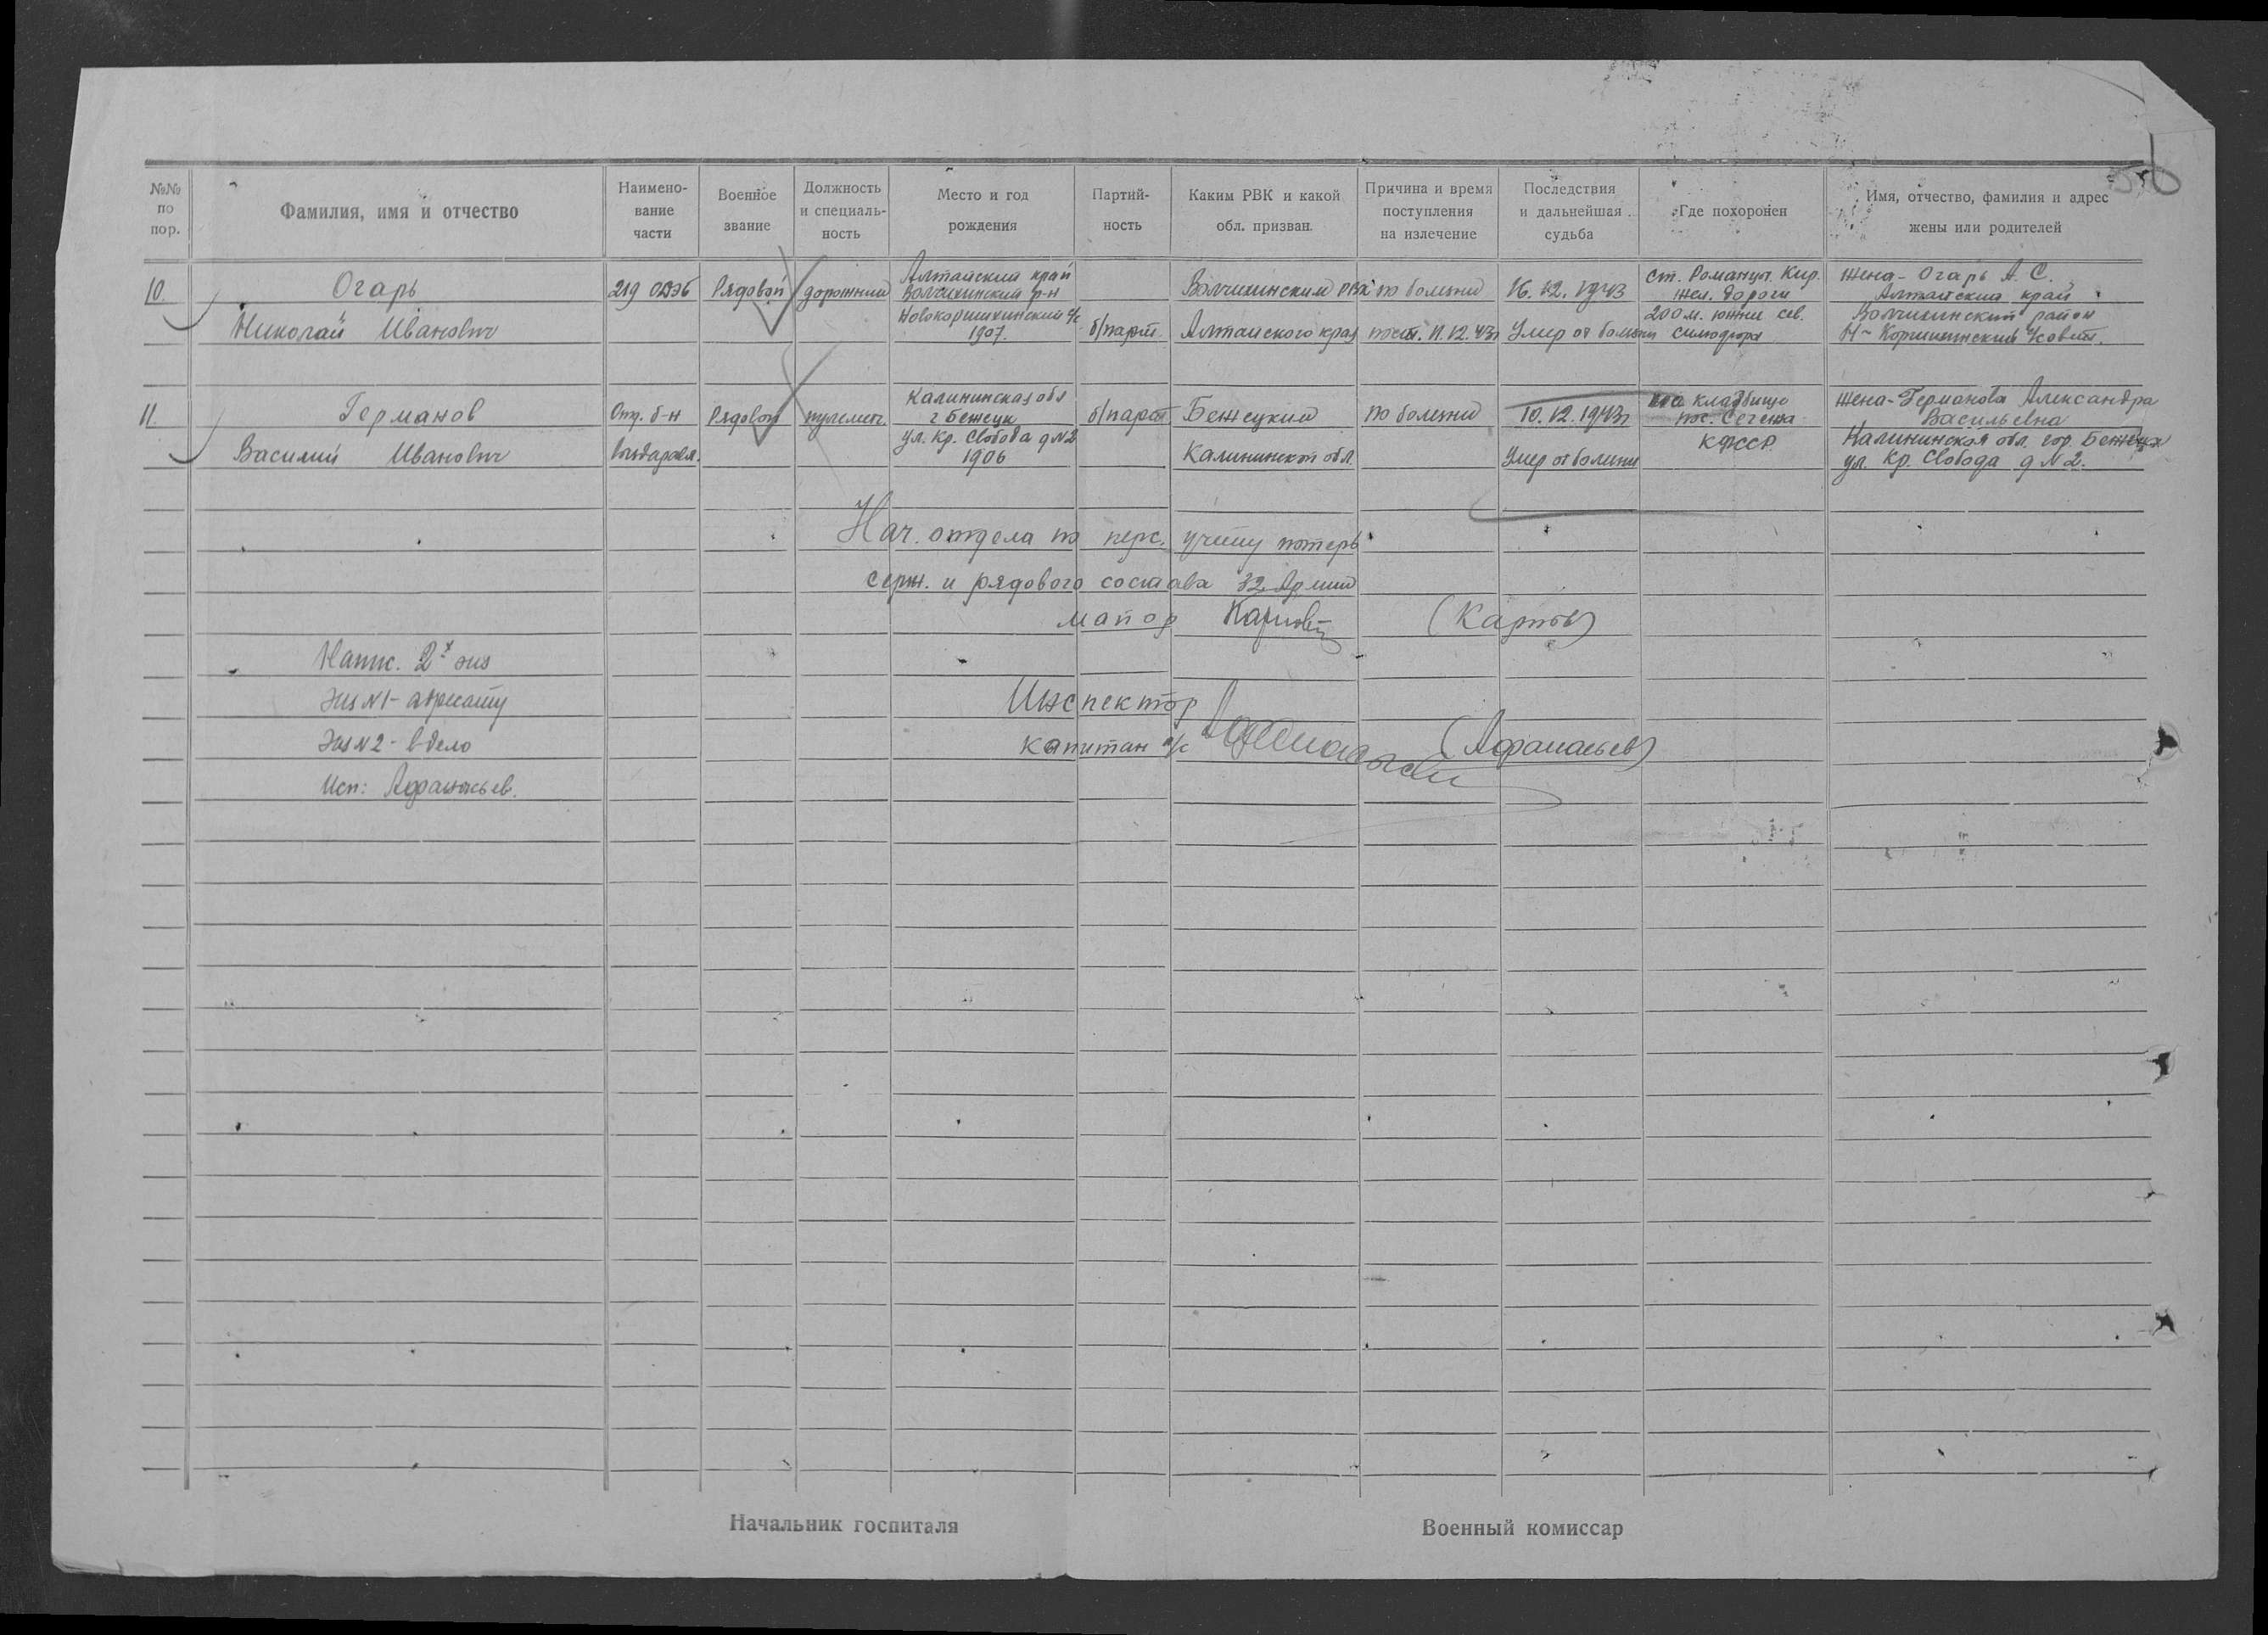 №№ по пор.
Фамилия, имя и отчество
Наимено-вание части
Военное звание
Должность и специаль-ность
Место и год рождения
Партий-ность
Каким РВК и какой обл. призван.
Причина и время поступления на излечение
Последствия и дальнейшая судьба
Где похоронен
Имя, отчество, фамилия и адрес жены или родителей
10.
Огарь
Николай Иванович
219 ОДЭБ
Рядовой
дорожник
Алтайский край
Волчихинский р-н
Новокормихинский с/с
1907.
б/парт.
Волчихинским РВК
Алтайского края
по болезни
пост. 11.12.43г
16.12.1943
Умер от болезни
ст. Кир.
жел. дороги
200 м. южнее сев.
семафора
Жена - Огарь А. С.
Алтайский край
Волчихинский район
Н-Кормихинский с/совет.
11.
Германов
Василий Иванович
Отд. б-н
выздоравл.
Рядовой
пулеметч.
Калининская обл
г Бежецк
ул. Кр. Свобода д N2
1906
б/парт.
Бежецким
Калининской обл.
по болезни
10.12.1943г
Умер от болезни
на кладбище
пос. Сегежа
КФССР
Жена - Германова Александра
Васильевна
Калининская обл. гор. Бежецк
ул. Кр. Свобода д N 2.
Нач. отдела по перс. учету потерь
серж. и рядового состава 32 Армии
майор (Карпов)
Напис. 2х экз
Экз N1 - адресату
Экз N2 - в дело
Исп: Афанасьев.
Инспектор
капитан а/с (Афанасьев)
Начальник госпиталя
Военный комиссар